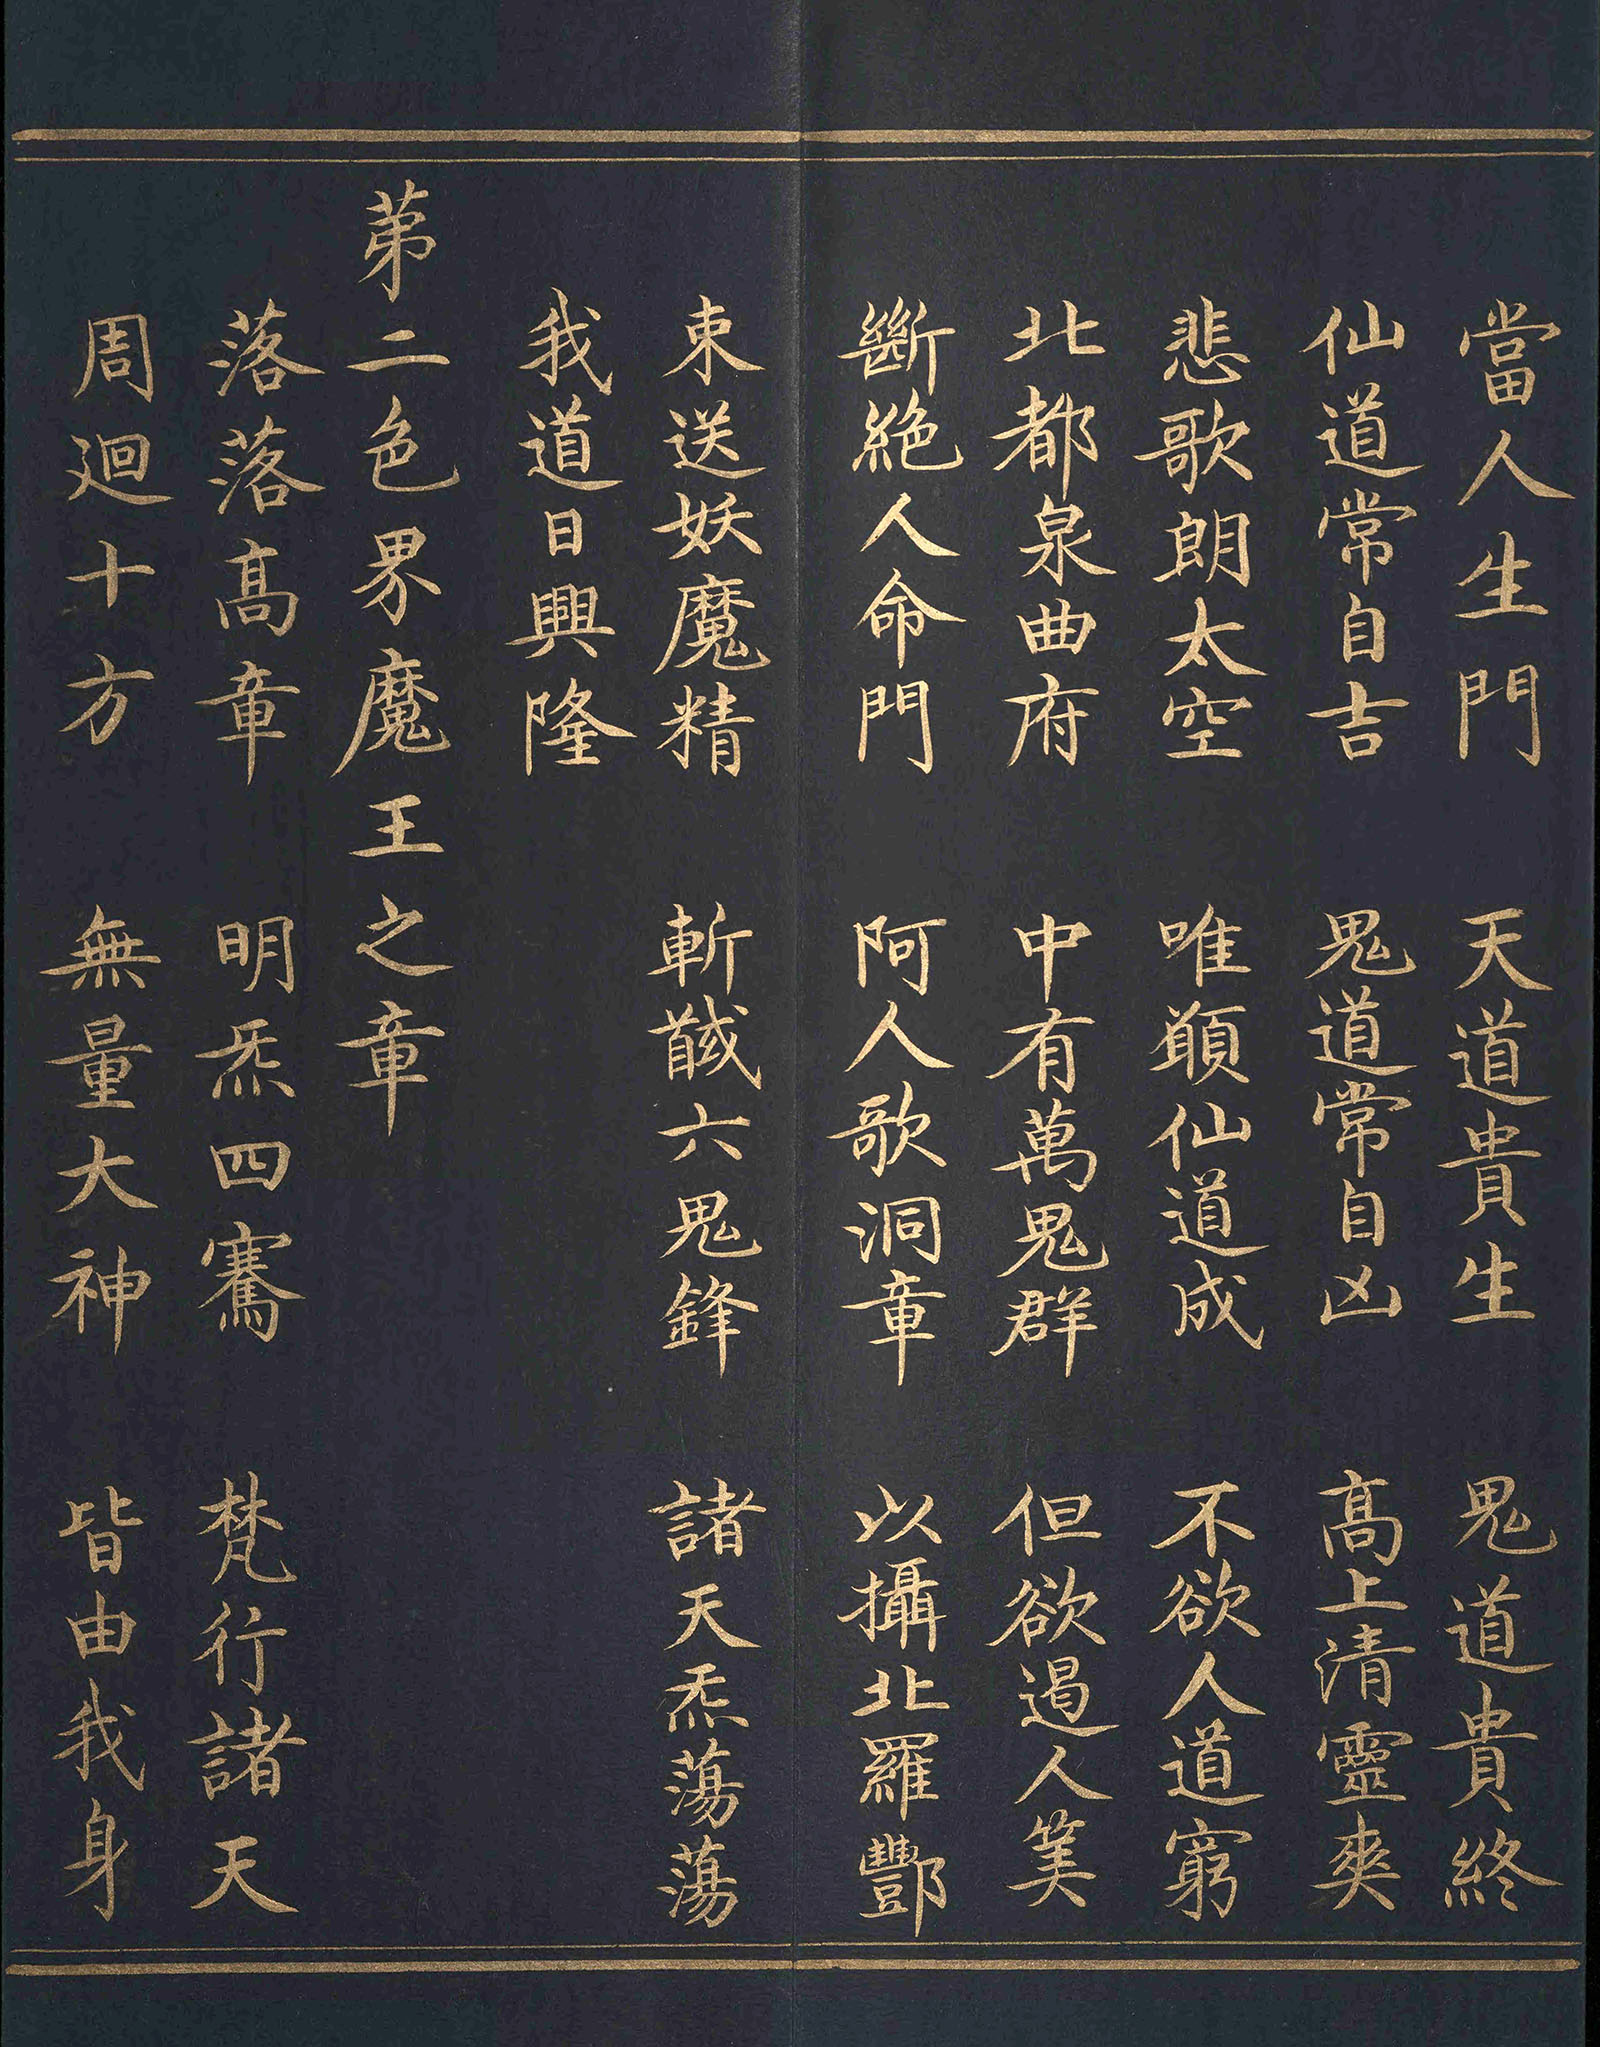 當人生門 天道貴生 鬼道貴終
仙道常自吉 鬼道常自凶 高上清靈爽
悲歌朗太空 唯願仙道成 不欲人道窮
北都泉曲府 中有萬鬼群 但欲遏人筭
斷絕人命門 阿人歌洞章 以攝北羅酆
束送妖魔精 斬馘六鬼鋒 諸天炁蕩蕩
我道日興隆
苐二色界魔王之章
落落高章 明炁四騫 梵行諸天
周迴十方 無量大神 皆由我身